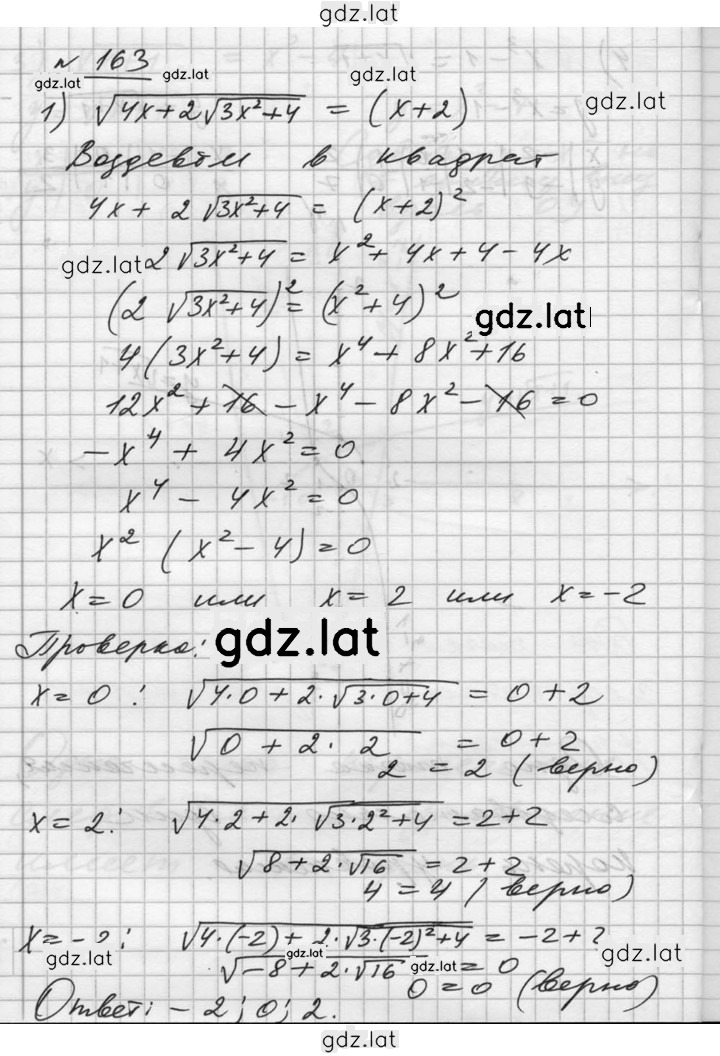 gdz.lat
№ 163
gdz.lat gdz.lat gdz.lat gdz.lat
1) √(4x+2√(3x²+4)) = (x+2)
Возведём в квадрат
4x + 2√(3x²+4) = (x+2)²
gdz.lat 2√(3x²+4) = x² + 4x + 4 - 4x
(2√(3x²+4))² = (x²+4)²
gdz.lat
4(3x²+4) = x⁴ + 8x² + 16
12x² + 16 - x⁴ - 8x² - 16 = 0
-x⁴ + 4x² = 0
x⁴ - 4x² = 0
x² (x² - 4) = 0
x = 0 или x = 2 или x = -2
Проверка: gdz.lat
x = 0 : √(4·0 + 2·√(3·0+4)) = 0 + 2
√(0 + 2·2) = 0 + 2
2 = 2 (верно)
x = 2 : √(4·2 + 2·√(3·2²+4)) = 2+2
√(8 + 2·√16) = 2 + 2
4 = 4 (верно)
x = -2 : √(4·(-2) + 2·√(3·(-2)²+4)) = -2+2
gdz.lat gdz.lat gdz.lat gdz.lat
√(-8 + 2·√16) = 0
0 = 0 (верно)
Ответ: -2; 0; 2.
gdz.lat